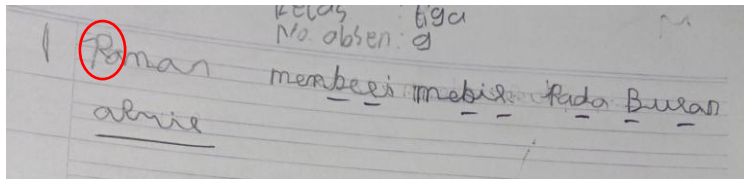 Kelas : tiga
No. absen : 9
1 Paman membeei mebil Pada Bulan